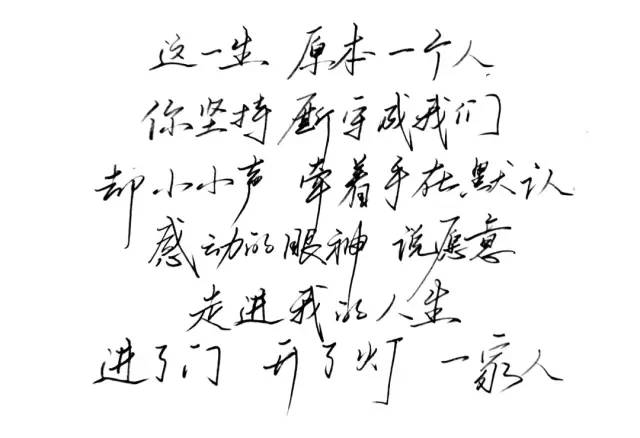 这一生 原本一个人
你坚持厮守成我们
却小小声 牵着手在默认
感动的眼神 说愿意
走进我的人生
进了门 开了灯 一家人